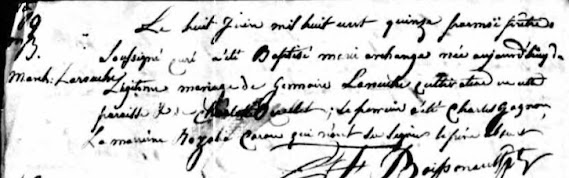 B.
Le huit Juin mil huit cent quinze par moi prêtre
Soussigné curé a été Baptisé marie archange née aujourd'huy du
Légitime mariage de Germain cultivateur de cette
paroisse & de Ouellet ; Le parrain a été Charles Gagnon
La marraine Rozalie Caron qui n'ont su signer le père absent
Boissonnault ptre